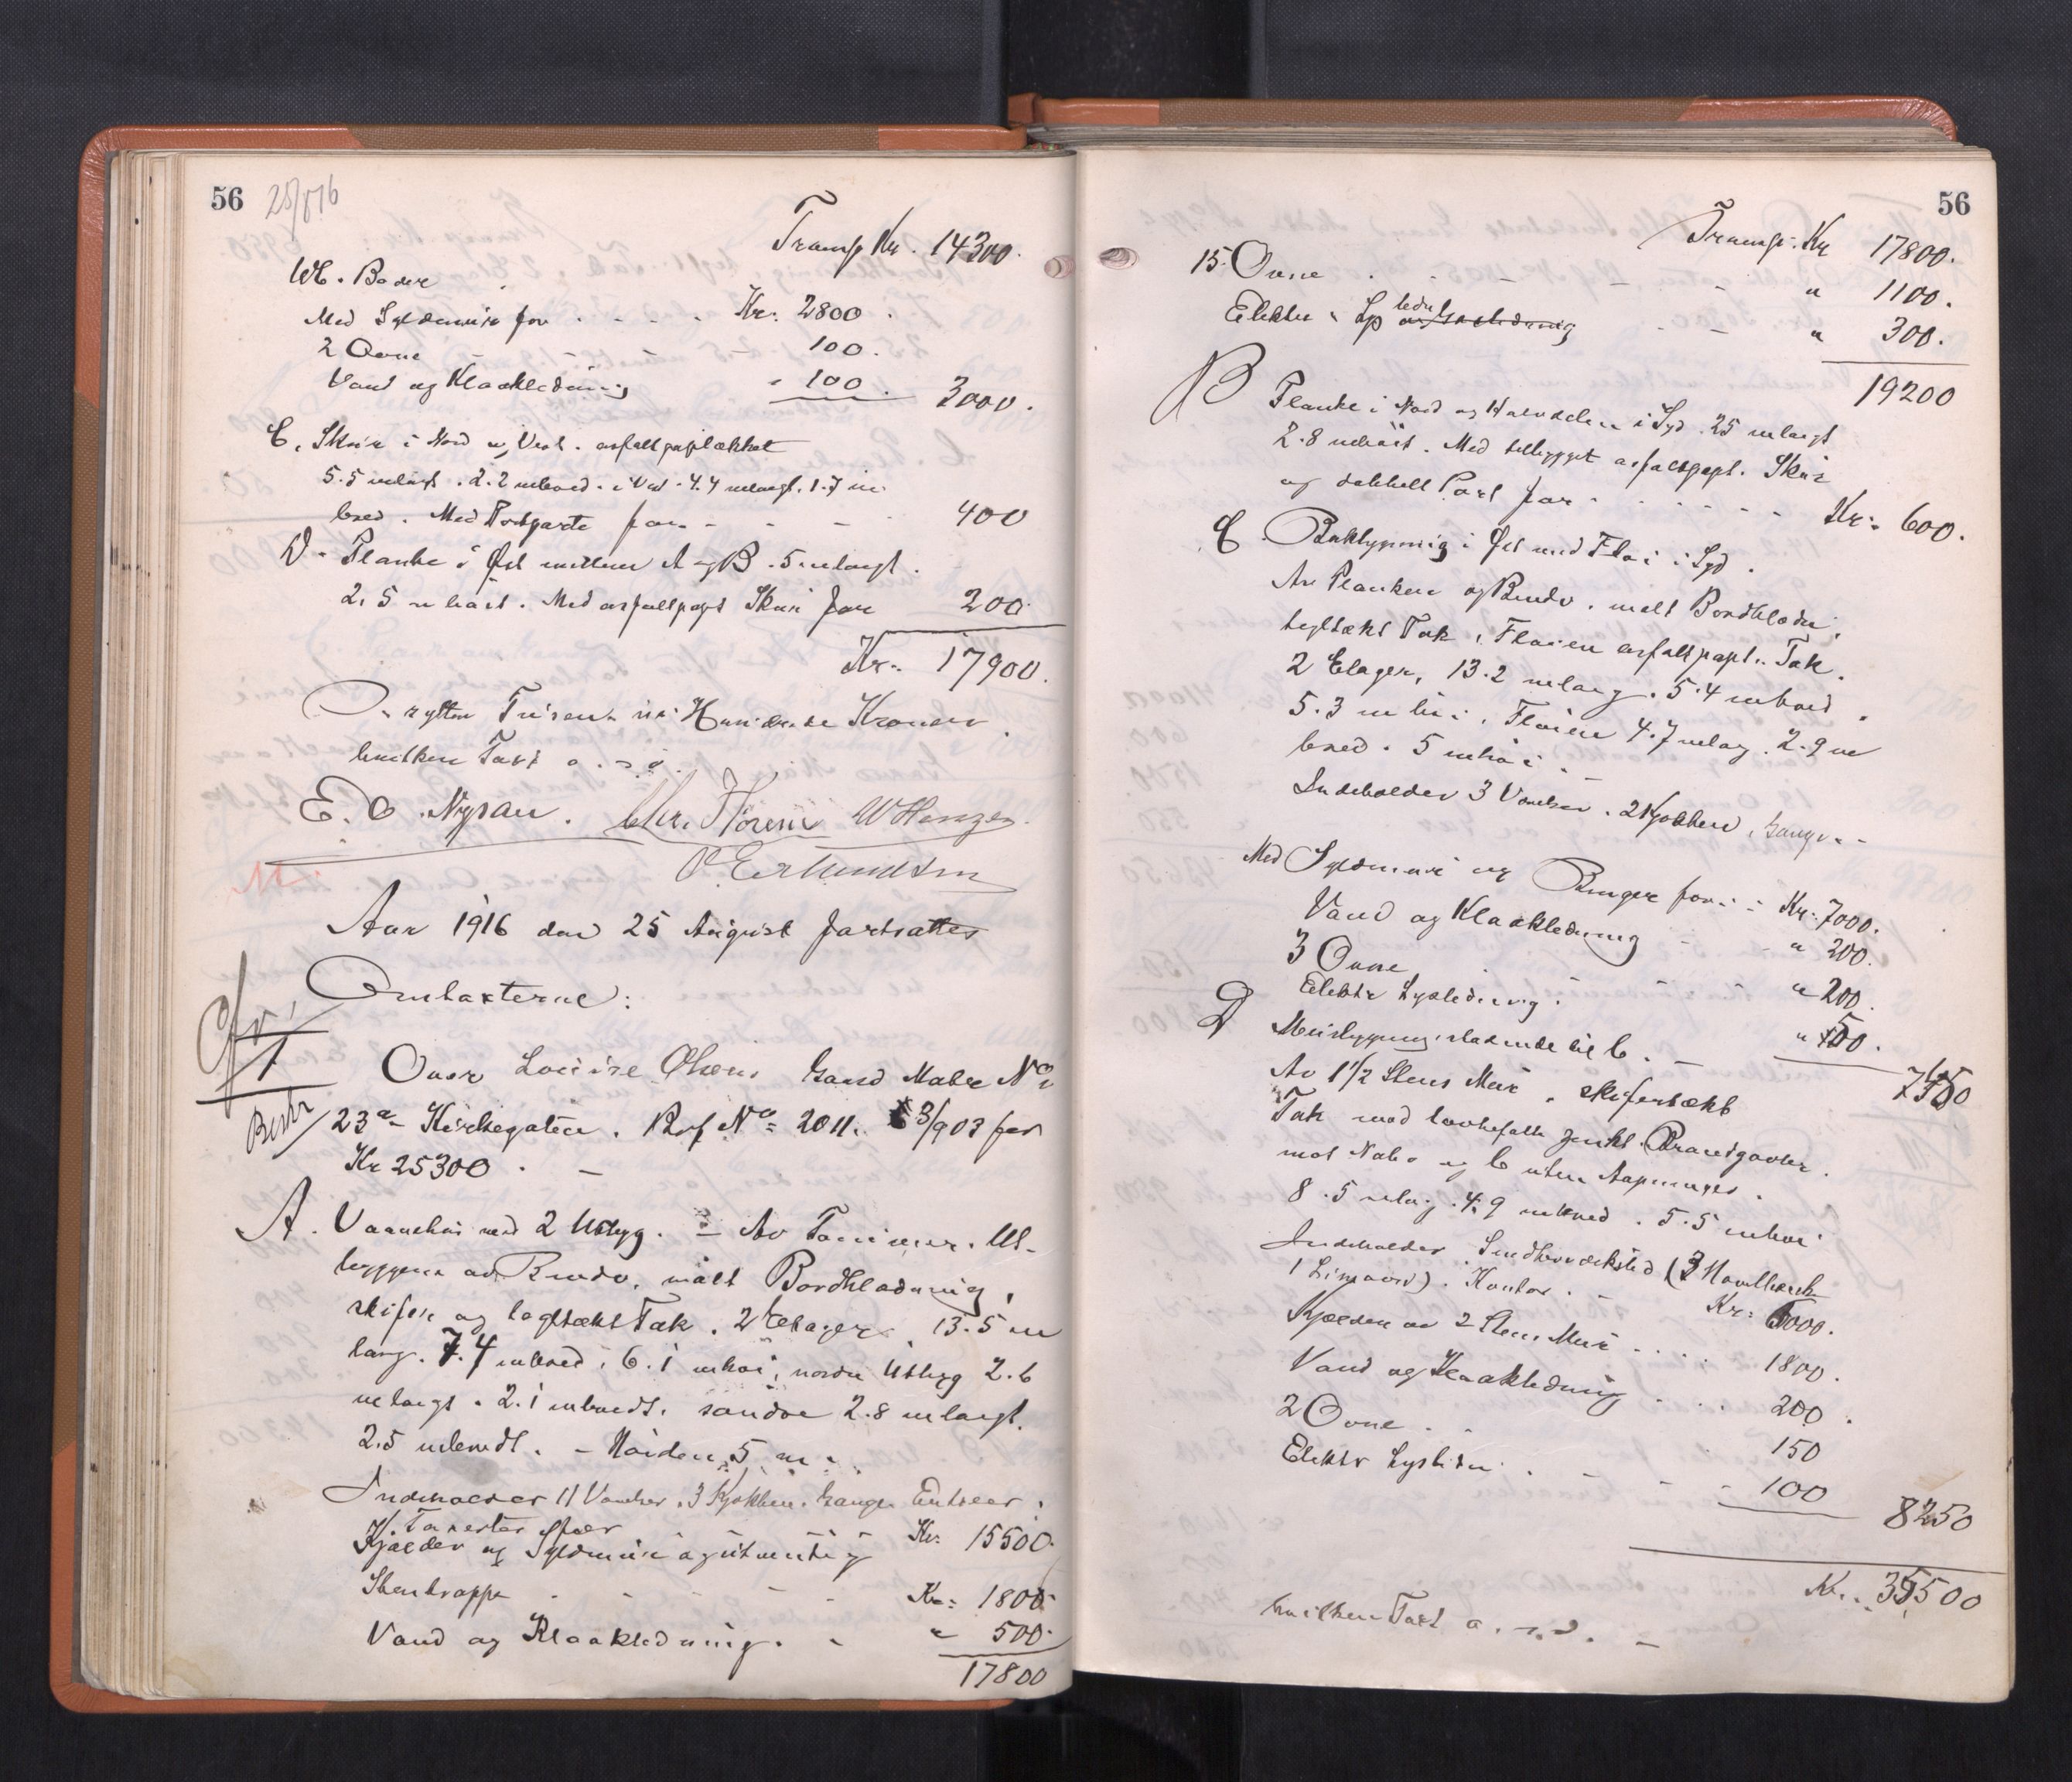 56 25/8 16
Transp Kr. 14300.
WC. Boder
Med Syldemur for - - - . Kr. 2800.
2 Ovne - - - - 100.
Vand og Kloakledning " 100. 3000.
C. Skur i Nord og Vest. asfaltpaptækket
5.5 m langt. 2.2 m bred. i Vest. 4.4 m langt. 1.7 m
bred. Med Portgarte for - - - - 400
D. Planke i Øst mellem A og B. 5 m langt.
2.5 m høit. Med asfaltpapt Skur for 200
Kr. 17900.
sytten Tusen ni Hundrede Kroner.
hvilken Taxt o.s.v.
E. O. Nysæu. Chr. W Henzen.
Mt.
Aar 1916 den 25 August fortsattes
Omtaxterne:
Cfr. 1
Over Louise Olsens Gaard Matr No
Bestr 23a Kirkegaten. Brf No = 2011. 3/903 for
Kr 25300. —
A. Vaanehus med 2 Utbyg. = Av Tømmer. Ut-
byggene av Bindv. malt Bordklædning,
skifer og tegltækt Tak. 2 Etager. 13.5 m
lang. 7.4 m bred. 6.1 m høi, nordre Utbyg 2.6
m langt. 2.1 m bredt. søndre 2.8 m langt.
2.5 m bredt. - Høiden 5 m.
Indeholder 11 Værelser. 3 Kjøkken. Gange Entreer.
Kr. 15500.
Kjælder og Syldmur og utvendig
Stentrappe - - - - - Kr: 1800.
Vand og Kloakledning. - " 500.
17800
56
Transp. Kr 17800.
15 Ovne . - - - - " 1100.
Elektr. Lysledn - - " 300.
19200
B Planke i Nord og Halvdelen i Syd. 25 m langt
2.8 m høit. Med tilbygget asfaltpapt. Skur
og dobbelt Port for - - - - - - Kr: 600.
C. Bakbygning i Øst med Fløi i Syd.
Av Planker og Bindv. malt Bordklædn.
tegltækt Tak, Fløien asfaltpapt. Tak.
2 Etager, 13.2 m lang. 5.4 m bred.
5.3 m høi, Fløien 4.7 m lang. 2.9 m
bred. 5 m høi. -
Indeholder 3 Værelser. 2 Kjøkken, Gange. -
Med Syldmur og for - - Kr: 7000.
Vand og Kloakledning - - " 200.
3 Ovne . - - - " 200.
Elektr Lysledning. - " 50.
7450
D Murbygning støtende til C. -
Av 1 1/2 Stens Mur, skifertækt
Tak med Brandgavler.
mot Nabo og C uten Aapninger.
8.5 m lang. 4.9 m bred. 5.5 m høi
Indeholder Snedkerværksted (3 Høvlbænk
1 Limovn). Kontor. - Kr: 6000.
Kjælder av 2 Stens Mur . . . . 1800.
Vand og Kloakledning . . . . 200.
2 Ovne . . 150
Elektr Lysledn. - - - 100
8250
Kr. 35500
hvilken Taxt o.s.v. —